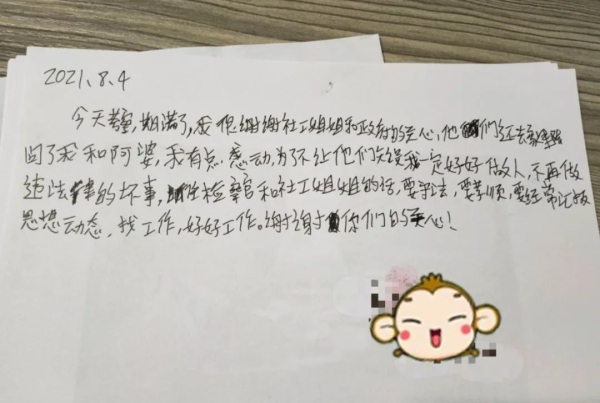 2021.8.4
今天考察期满了,我很谢谢社工姐姐和政府的关心,他们还去家里
问了我和阿婆,我有点感动,为了不让他们失望我一定好好做人,不再做
违法的坏事,听检察官和社工姐姐的话,要守法,要孝顺,要经常汇报
思想动态,找工作,好好工作。谢谢你们的关心!